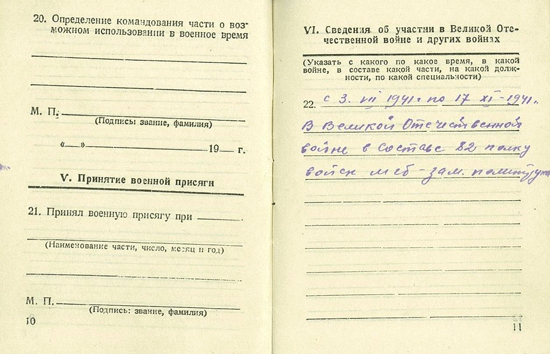 20. Определение командования части о воз-
можном использовании в военное время
М. П.
(Подпись: звание, фамилия)
«—» 19— г.
V. Принятие военной присяги
21. Принял военную присягу при
(Наименование части, число, месяц и год)
М. П.
(Подпись: звание, фамилия)
10
VI. Сведения об участии в Великой Оте-
чественной войне и других войнах
(Указать с какого по какое время, в какой
войне, в составе какой части, на какой долж-
ности, по какой специальности)
22. с 3. VII 1941 г по 17 XI-1941г.
В Великой Отечественной
войне в составе 82 полку
войск МГБ - зам. политрука
11